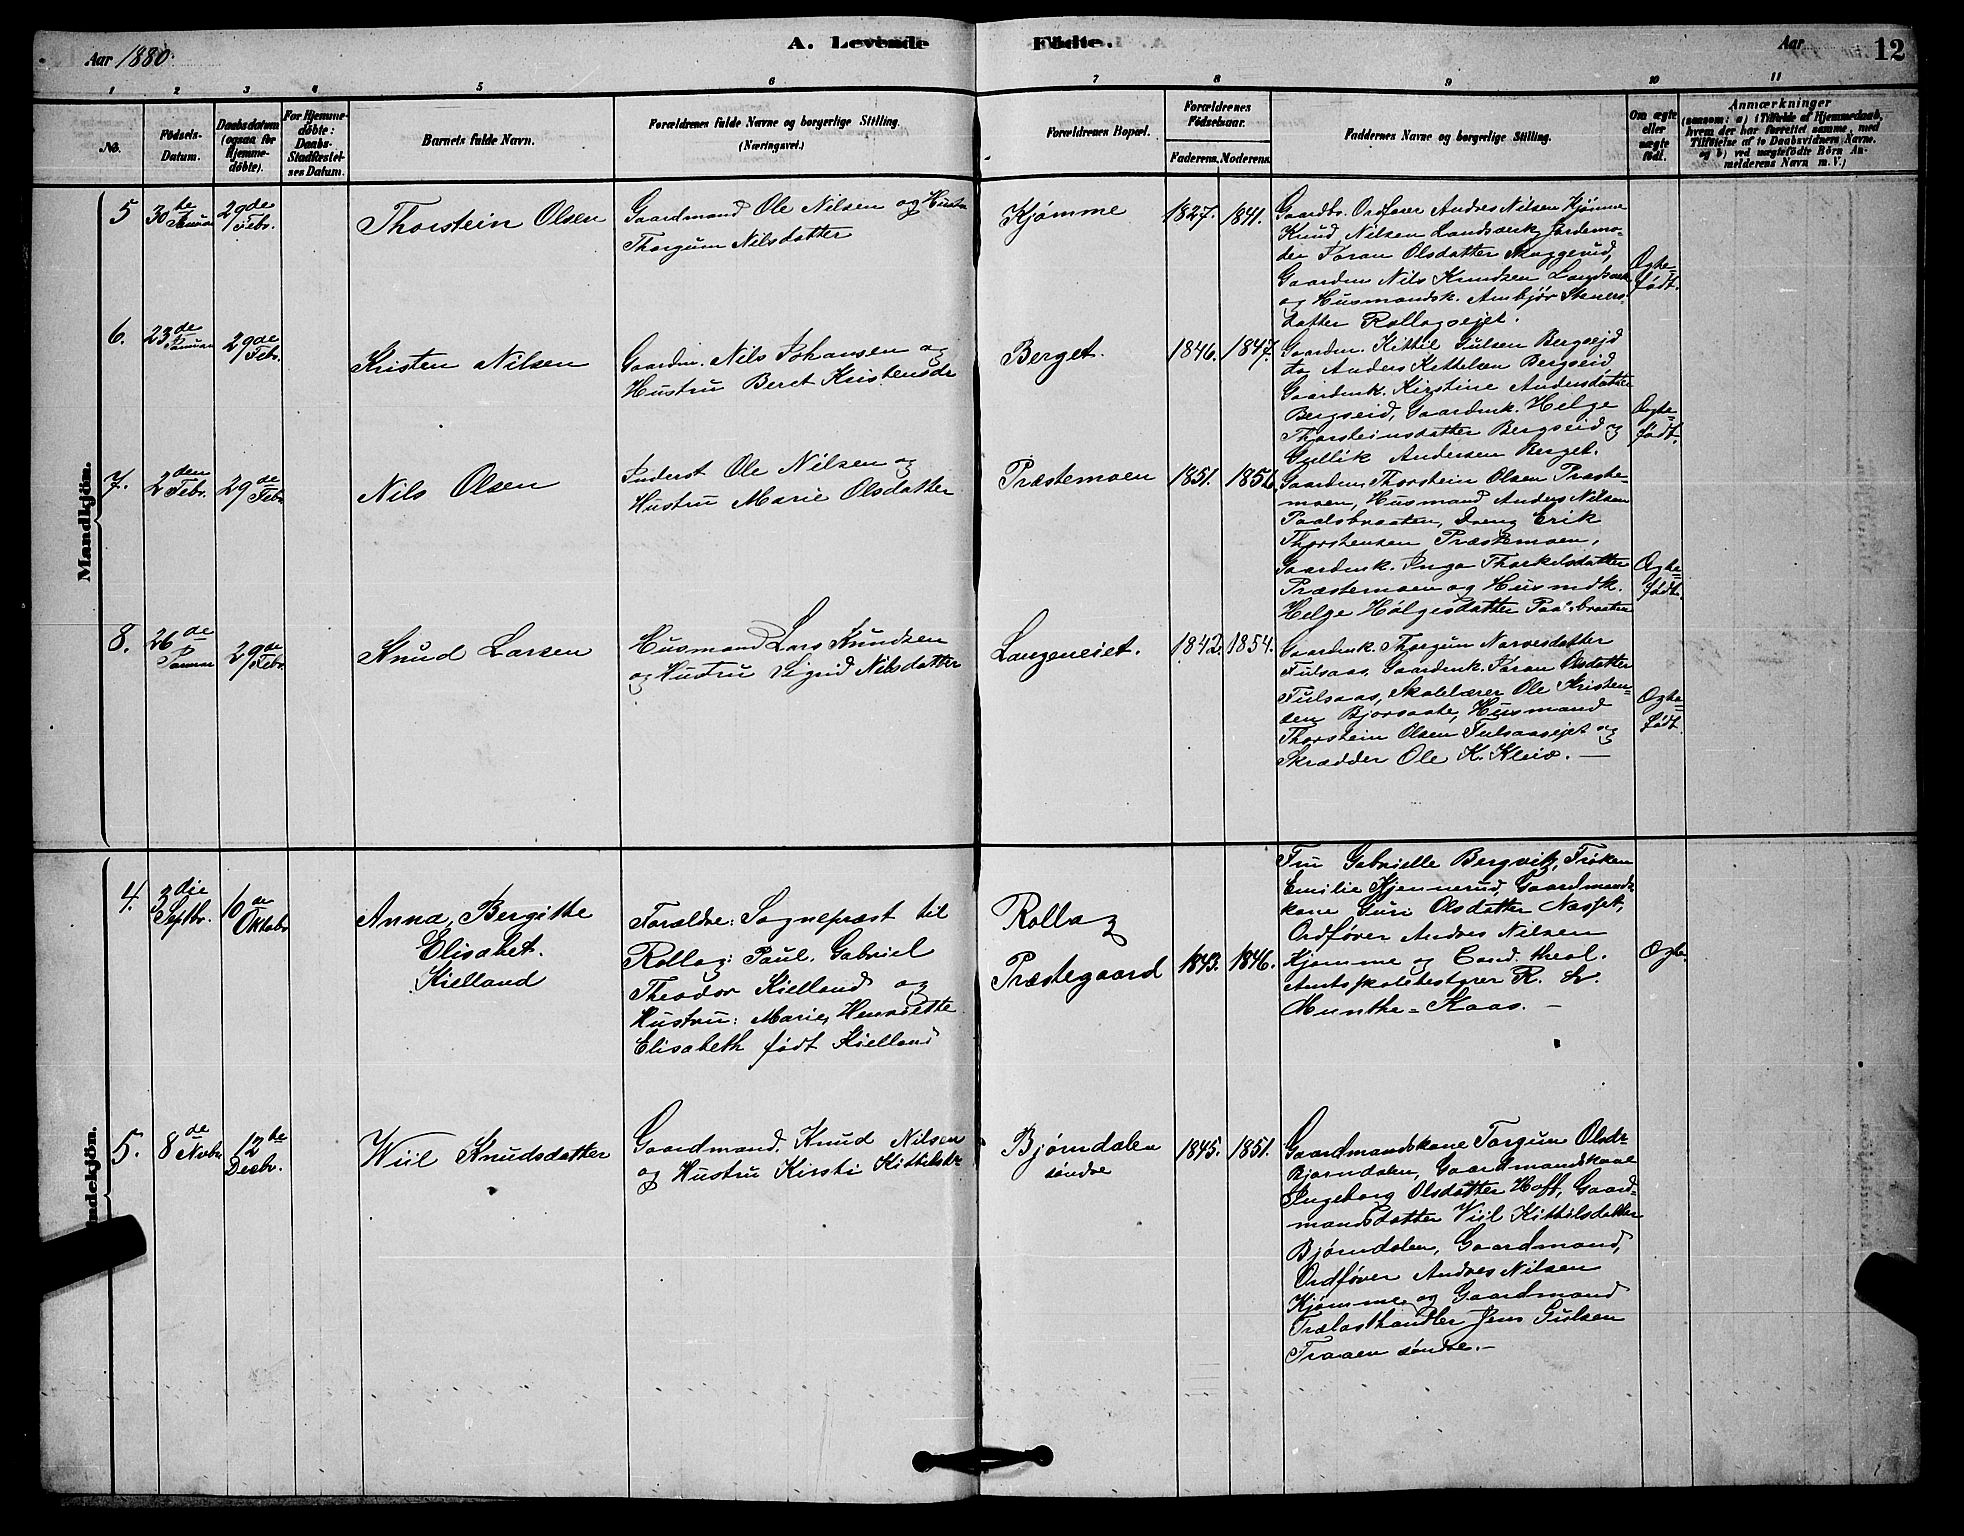 Aar 1880.
A. Levende Fødte.
Aar
12
1 2 3 4 5 6 7 8 9 10 11
No.
Fødsels-Datum.
Daabsdatum (ogsaa for Hjemmedøbte).
For Hjemmedøbte: Daabs-Stadfæstelses Datum.
Barnets fulde Navn.
Forældrenes fulde Navne og borgerlige Stilling. (Næringsvei.)
Forældrenes Bopæl.
Forældrenes Fødselsaar.
Faderens. Moderens.
Faddernes Navne og borgerlige Stilling.
Om ægte eller uægte født.
Anmærkninger
(saasom: a) i Tilfælde af Hjemmedaab, hvem der har forrettet samme, med Tilføielse af to Daabsvidners Navne. og b) ved uægtefødte Børn Anmelderens Navn m. V.)
Mandkjön.
5
30de Januar
29de Febr.
Thorstein Olsen
Gaardmand Ole Nilsen og Hustru
Thorgum Nilsdatter
Kjømme
1827. 1841.
Gaardbr. Ordfører Andres Nilsen Kjømme
Knud Nilsen Landsverk, Jordemo-
der Joran Olsdatter Muggerud,
Gaardm. Nils Knudsen Landsverk
og Husmandsk. Ambjør Steners-
datter Rollagsejet.
Ægte-
født.
6.
23de Januar
29de Febr.
Kristen Nilsen
Gaardm. Nils Johansen og
Hustru Beret Kristensdr
Berget.
1846. 1847.
Gaardm. Kittil Gulsen Bergseid
do Anders Kettelsen Bergseid
Gaardmk. Kirstine Andersdatter
Bergseid, Gaardmk. Helge
Thorsteinsdatter Bergseid og
Gullik Andersen Berget.
Ægte-
født.
7.
2den Febr.
29de Febr.
Nils Olsen
Inderst Ole Nilsen og
Hustru Marie Olsdatter
Præstemoen
1851.
Gaardm. Thorstein Olsen Præste-
moen, Husmand Anders Nilsen
Paalsbraaten, Dreng Erik
Thorstensen Præstemoen,
Gaardmk. Inga Thorkelsdatter
Præstemoen og Husmdk.
Helge Helgesdatter Paalsbraaten
Ægte-
født.
8.
26de Januar
29de Febr.
Knud Larsen
Husmand Lars Knudsen
og Hustru Sigrid Nilsdatter
Langeneiet.
1842. 1854.
Gaardmk. Thorgun Narvesdatter
Fulsaas, Gaardmk. Joran Olsdatter
Fulsaas, Skolelærer Ole Kristen-
sen Bjorsaate, Husmand
Thorstein Olsen Fulsaasejet og
Skrædder Ole K. Kleiv. —
Ægte-
født
ndekjön.
4.
3die Septbr.
10de Oktobr
Anna Bergitte
Elisabet.
Kielland
Forældre: Sognepræst til
Rollag: Paul Gabriel
Theodor Kielland og
Hustru: Marie Henriette
Elisabeth født Kielland
Rollag
Præstegaard
1843. 1846.
Fru Gabrielle Bergvitz, Frøken
Emilie Hjennerud, Gaardmands-
kone Guri Olsdatter Næsset,
Ordfører Andres Nilsen
Kjømme og Cand. theol.
Amtsskolebestyrer R. L.
Munthe-Kaas. —
Ægte.
5.
8de Novbr
12de Decbr.
Wiil Knudsdatter
Gaardmand. Knud Nilsen
og Hustru Kirsti Kittilsdr
Bjørndalen
søndre
1845. 1851.
Gaardmandskone Torgun Olsdr
Bjørndalen, Gaardmandskone
Ingeborg Olsdatter Hoff, Gaard-
mandsdatter Viil Kittilsdatter
Bjørndalen, Gaardmand,
Ordfører Andres Nilsen
Kjømme og Gaardmand
Trælasthandler Jens Gulsen
Traaen søndre. —